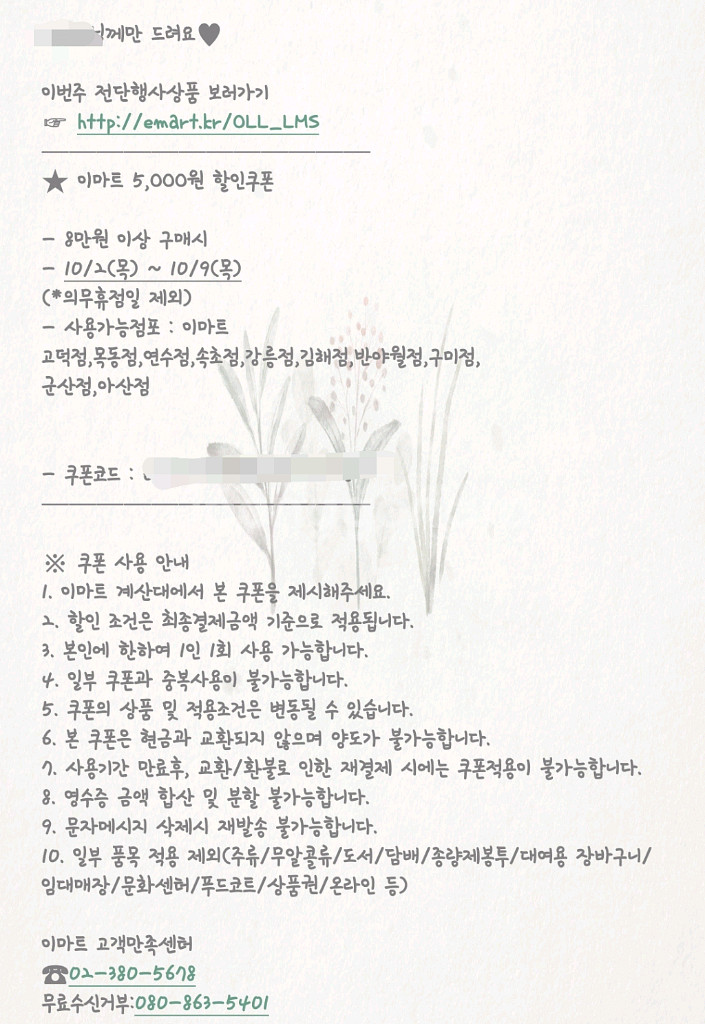 께만 드려요♥
이번주 전단행사상품 보러가기
☞ http://emart.kr/OLL_LMS
★ 이마트 5,000원 할인쿠폰
- 8만원 이상 구매시
- 10/2(목) ~ 10/9(목)
(*의무휴점일 제외)
- 사용가능점포 : 이마트
고덕점,목동점,연수점,속초점,강릉점,김해점,반야월점,구미점,
군산점,아산점
- 쿠폰코드 :
※ 쿠폰 사용 안내
1. 이마트 계산대에서 본 쿠폰을 제시해주세요.
2. 할인 조건은 최종결제금액 기준으로 적용됩니다.
3. 본인에 한하여 1인 1회 사용 가능합니다.
4. 일부 쿠폰과 중복사용이 불가능합니다.
5. 쿠폰의 상품 및 적용조건은 변동될 수 있습니다.
6. 본 쿠폰은 현금과 교환되지 않으며 양도가 불가능합니다.
7. 사용기간 만료후, 교환/환불로 인한 재결제 시에는 쿠폰적용이 불가능합니다.
8. 영수증 금액 합산 및 분할 불가능합니다.
9. 문자메시지 삭제시 재발송 불가능합니다.
10. 일부 품목 적용 제외(주류/무알콜류/도서/담배/종량제봉투/대여용 장바구니/
임대매장/문화센터/푸드코트/상품권/온라인 등)
이마트 고객만족센터
☎02-380-5678
무료수신거부:080-863-5401